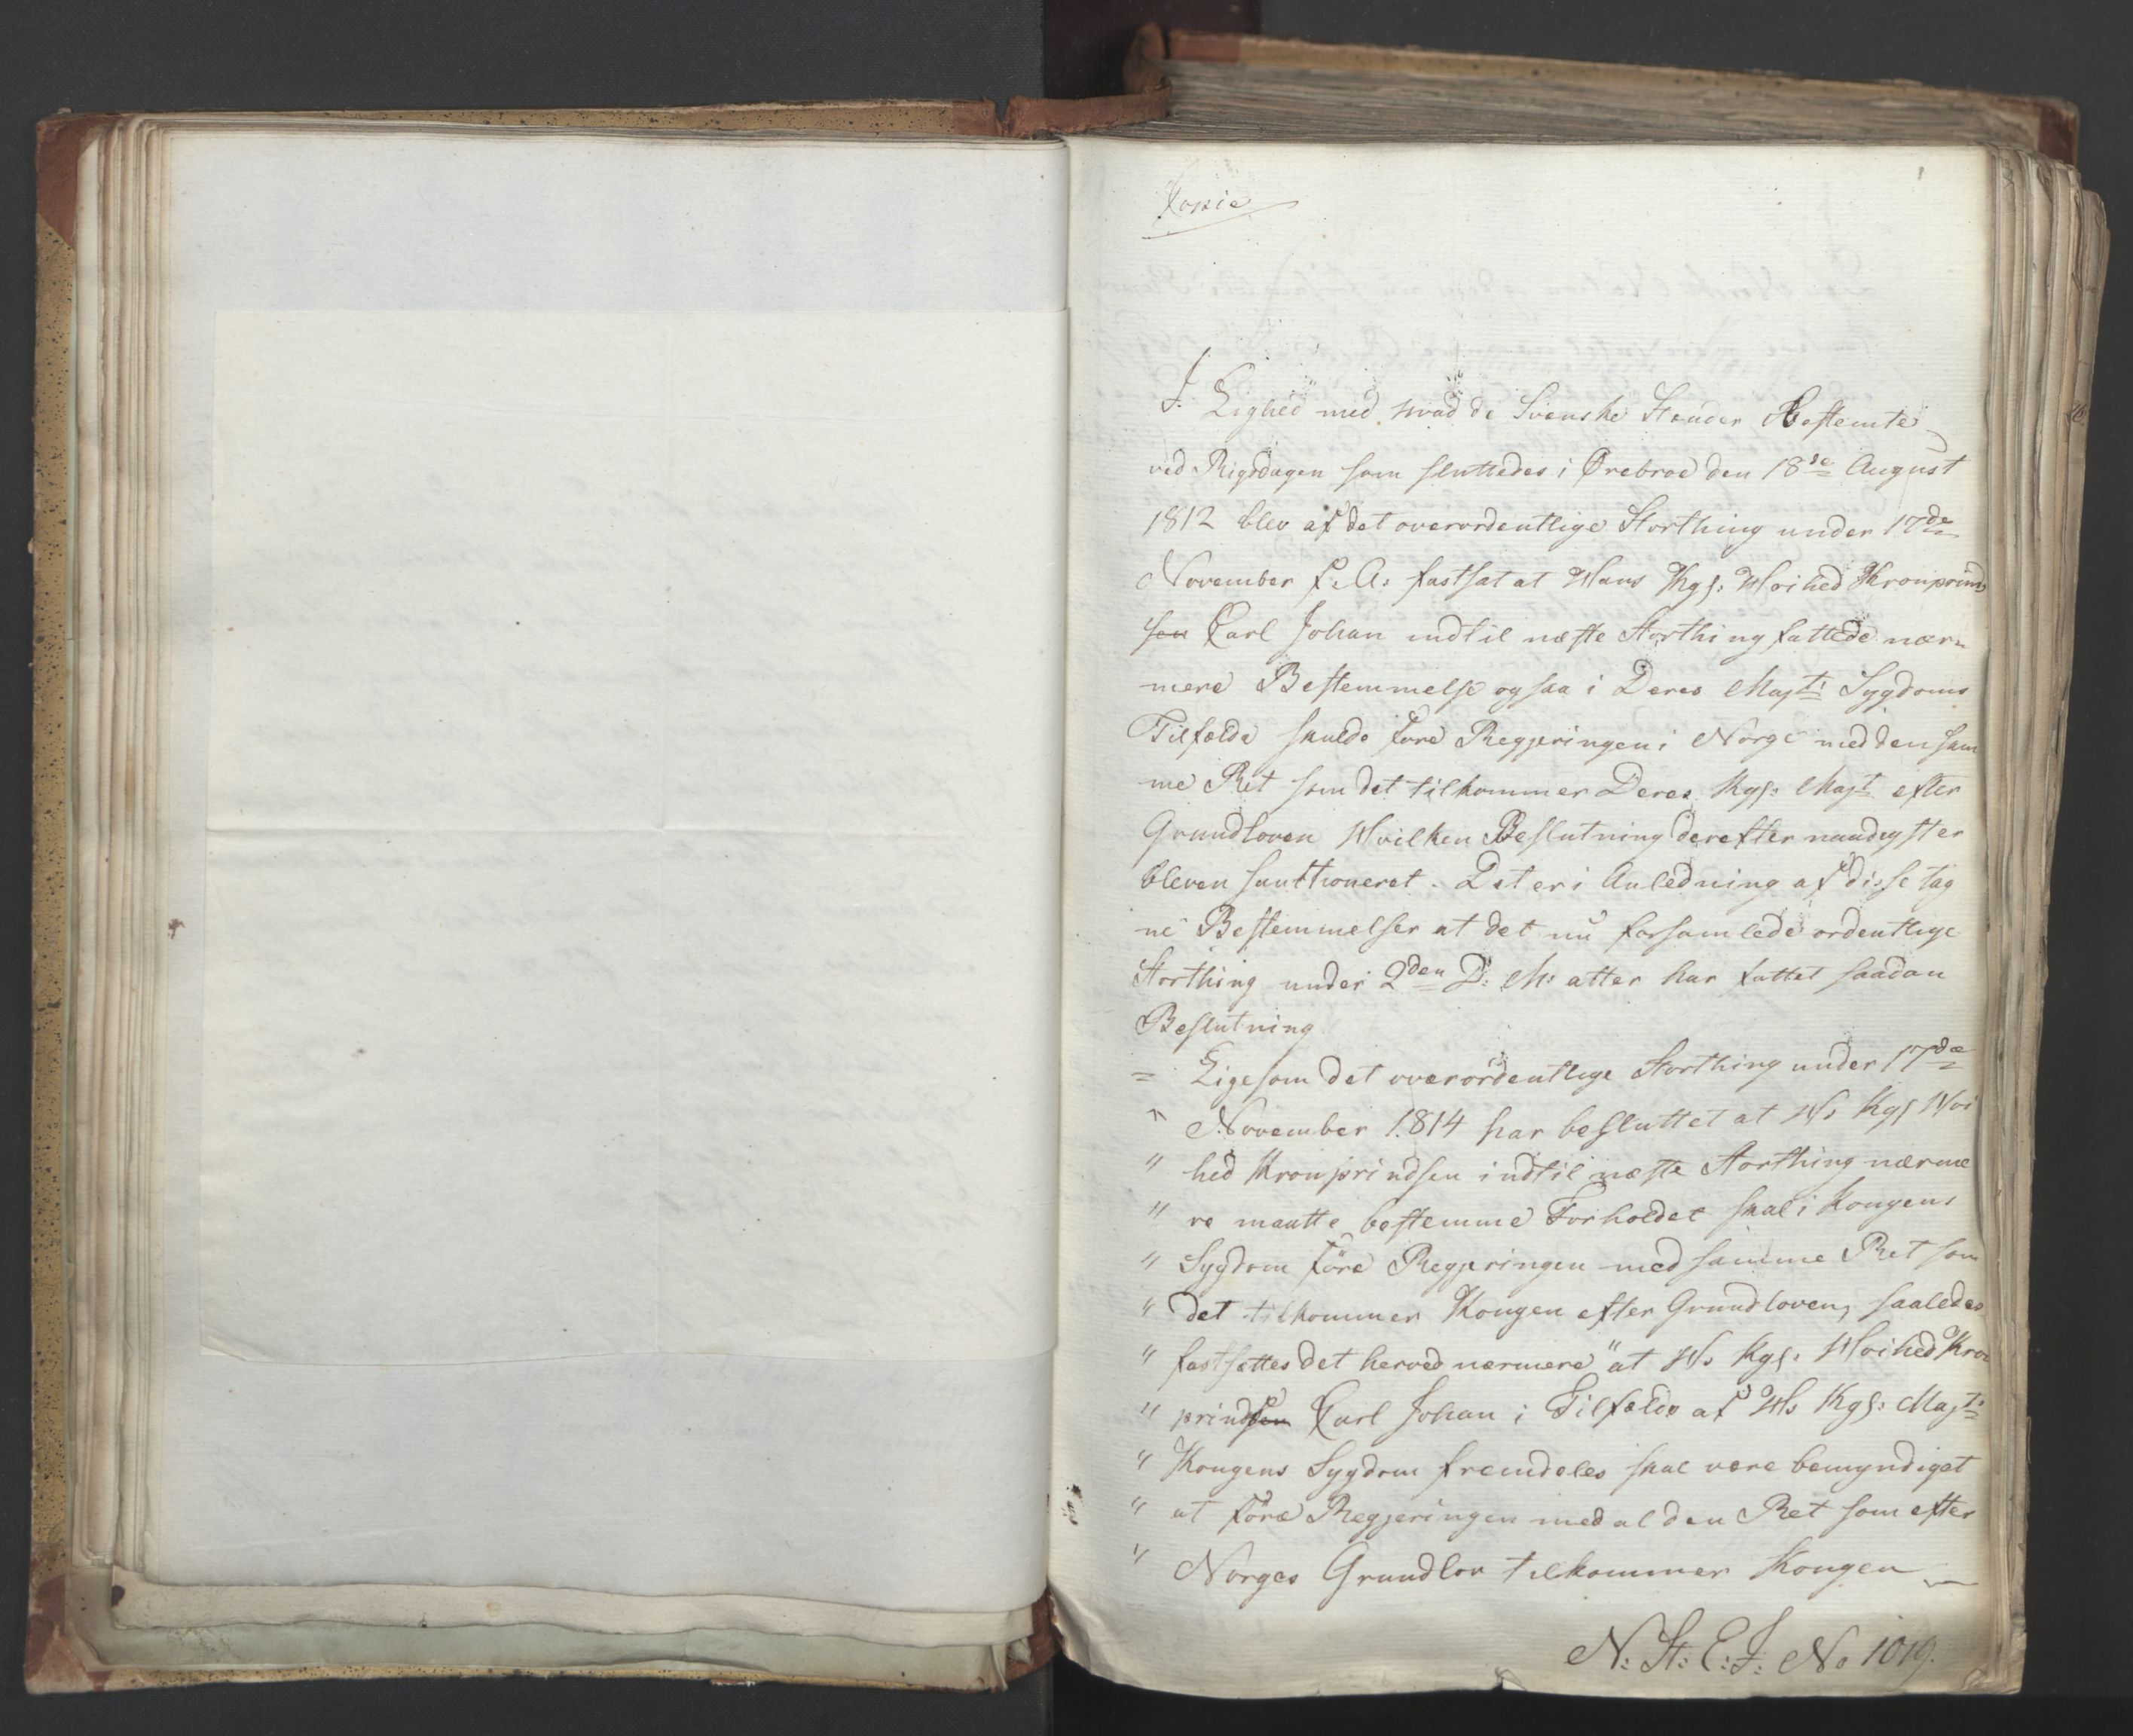 Copie
I Lighed med hvad de Svenske Stænder Bestemte
ved Rigsdagen som sluttedes i Ørebroe den 18de August
1812 blev af det overordentlige Storthing under 17de
November f: A: fastsat at Hans Kgs: Høihed Kronprind
sen Carl Johan indtil næste Storthing fattede nær-
mere Bestemmelse ogsaa i Deres Majts: Sygdoms
Tilfælde skulde føre Regjeringen i Norge med den sam
me Ret som det tilkommer Deres Kgs: Majt efter
Grundloven Hvilken Beslutning derefter naadigst er
bleven sanktioneret. Det er i Anledning af disse tag
ne Bestemmelser at det nu forsamlede ordentlige
Storthing under 2den D: M: atter har fattet saadan
Beslutning
= Ligesom det overordentlige Storthing under 17de
" November 1814 har besluttet at Hs Kgs Høi
" hed Kronprindsen indtil næste Storthing nærme
" re maatte bestemme Forholdet skal i Kongens
" Sygdom føre Regjeringen med samme Ret som
" det tilkommer Kongen efter Grundloven, saaledes
" fastsættes det herved nærmere "at Hs Kgs: Høihed Kron
" prindsen Carl Johan i Tilfælde af Hs Kgs: Majts:
" Kongens Sygdom fremdeles skal være bemyndiget
" at føre Regjeringen med al den Ret som efter
" Norges Grundlov tilkommer Kongen
N: St: E: J: No 1019.